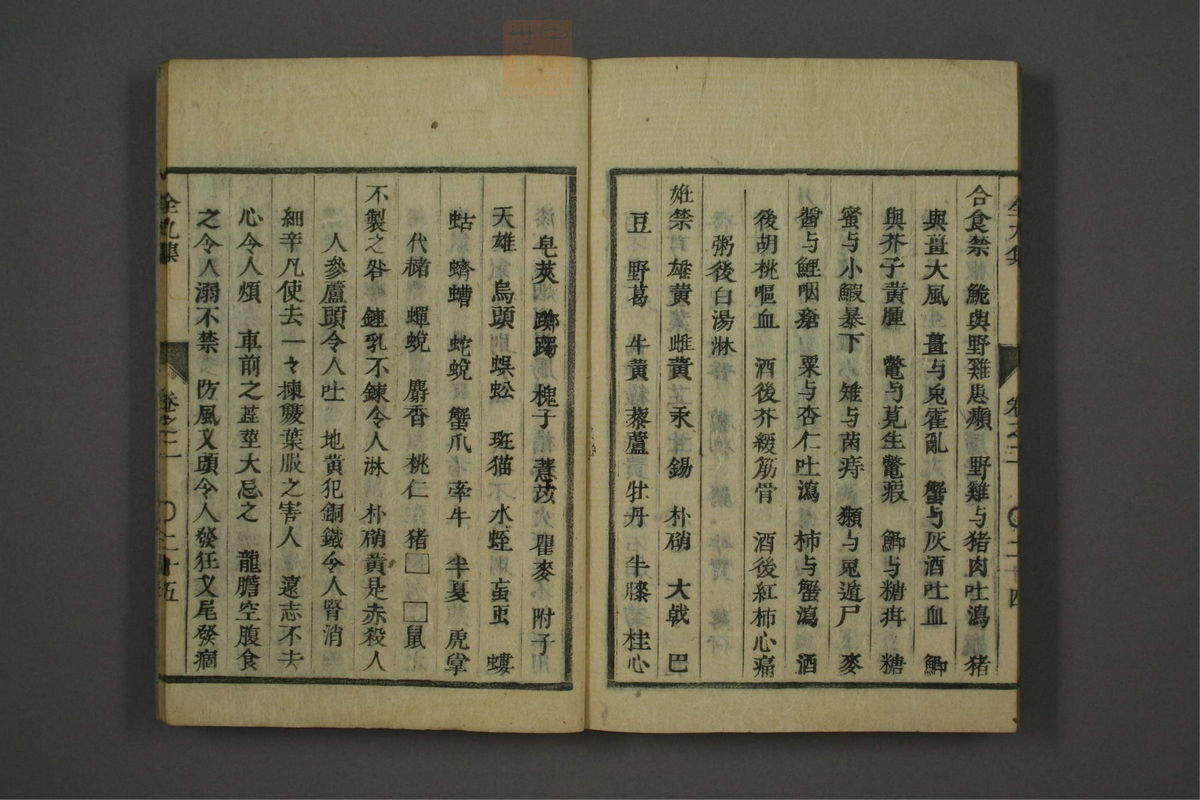 合食禁 鮠與野雞患癩 野雞与猪肉吐瀉 猪
與薑大風 薑与兎霍亂 蟹与灰酒吐血 鯽
與芥子黄腫 鼈与莧生鼈瘕 鯽与糖疳 糖
蜜与小鰕暴下 雉与菌痔 獺与兎遁尸 麥
醬与鯉咽瘡 粟与杏仁吐瀉 柿与蟹瀉 酒
後胡桃嘔血 酒後芥緩筋骨 酒後紅柿心痛
粥後白湯淋
姙禁 雄黄 雌黄 汞 錫 朴硝 大戟 巴
豆 野葛 牛黄 藜蘆 牡丹 牛膝 桂心
皂莢 躑躅 槐子 薏苡 瞿麥 附子
天雄 烏頭 蜈蚣 斑猫 水蛭 䖟䖝 螻
蛄 蠐螬 蛇蛻 蟹爪 牽牛 半夏 虎掌
代赭 蟬蛻 麝香 桃仁 猪□ □鼠
不製之咎 鍾乳不鍊令人淋 朴硝黄是赤殺人
人參蘆頭令人吐 地黄犯銅鐵令人腎消
細辛凡使去一々揀雙葉服之害人 遠志不去
心令人煩 車前之莖葉大忌之 龍膽空腹食
之令人溺不禁 防風叉頭令人發狂叉尾發痼
全九集
卷之二
〇二十四
全九集
卷之二
〇二十五